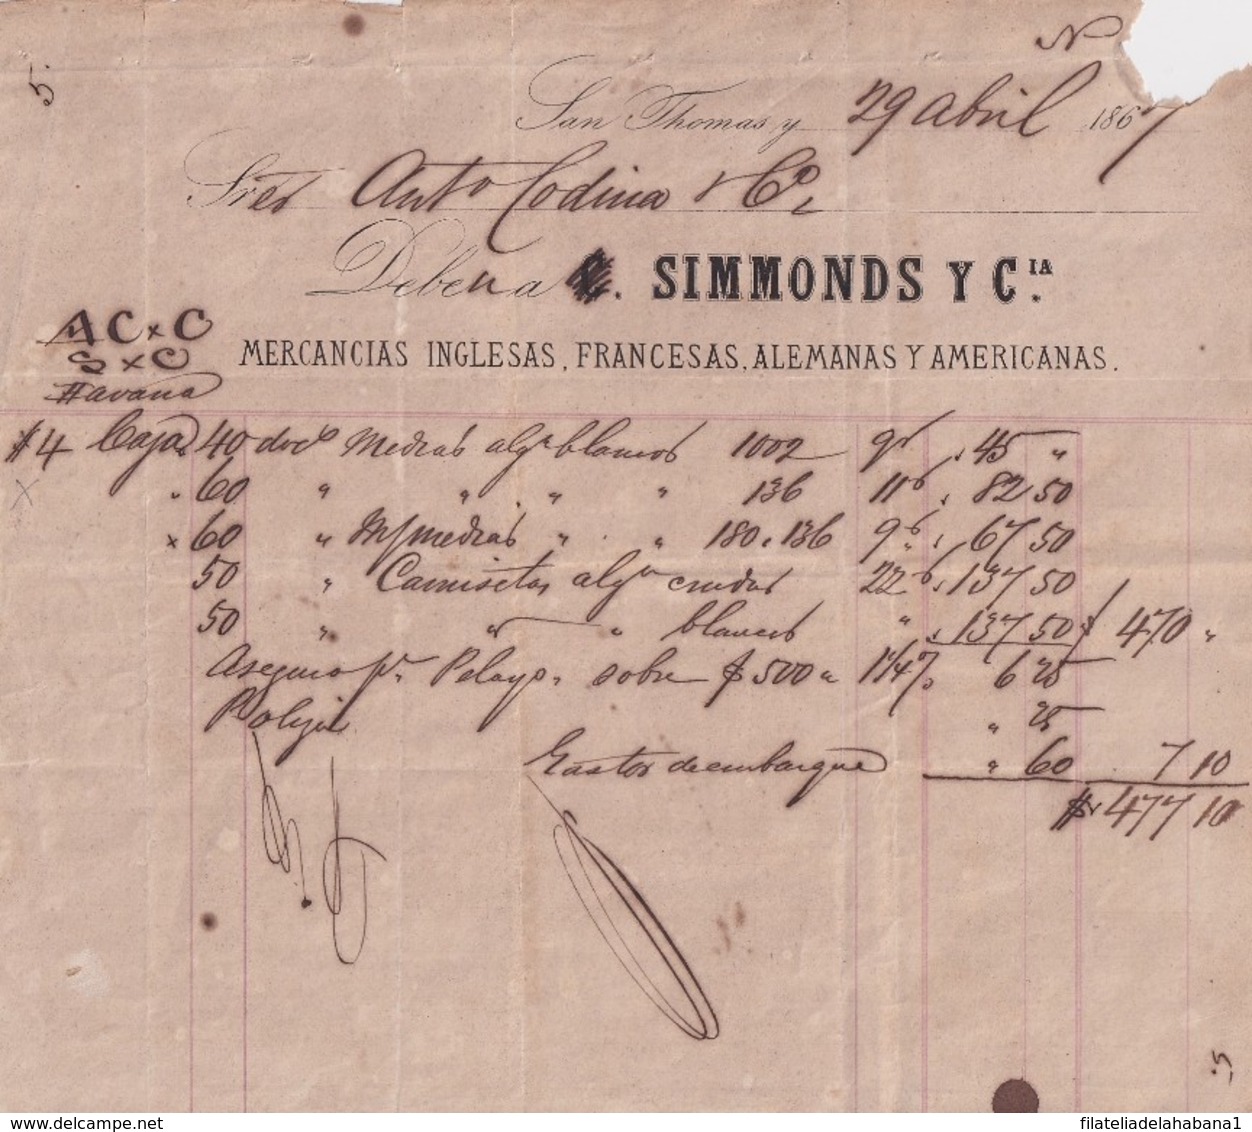 N
5.
San Thomas y 29 Abril 1867
Sres Anto Codina & Co,
Deben a . SIMMONDS Y CIA.
A C x C
S x C
Havana
MERCANCIAS INGLESAS, FRANCESAS, ALEMANAS Y AMERICANAS.
#4 Caja 40 docs Medias algn blancos 1002 9r 45 "
x " 60 " " " " 136 11r 82 50
x 60 " M/medias " " 180 . 136 9r 67 50
50 " Camisetas algn crudas 22r 137 50
50 " " " blancas " 137 50 $ 470 "
Aseguro pr Pelayo sobre $500 " 1 1/4 % 6 25
" 25
Gastos de embarque " 60 7 10
$ 477 10
5
filateliadelahabana1